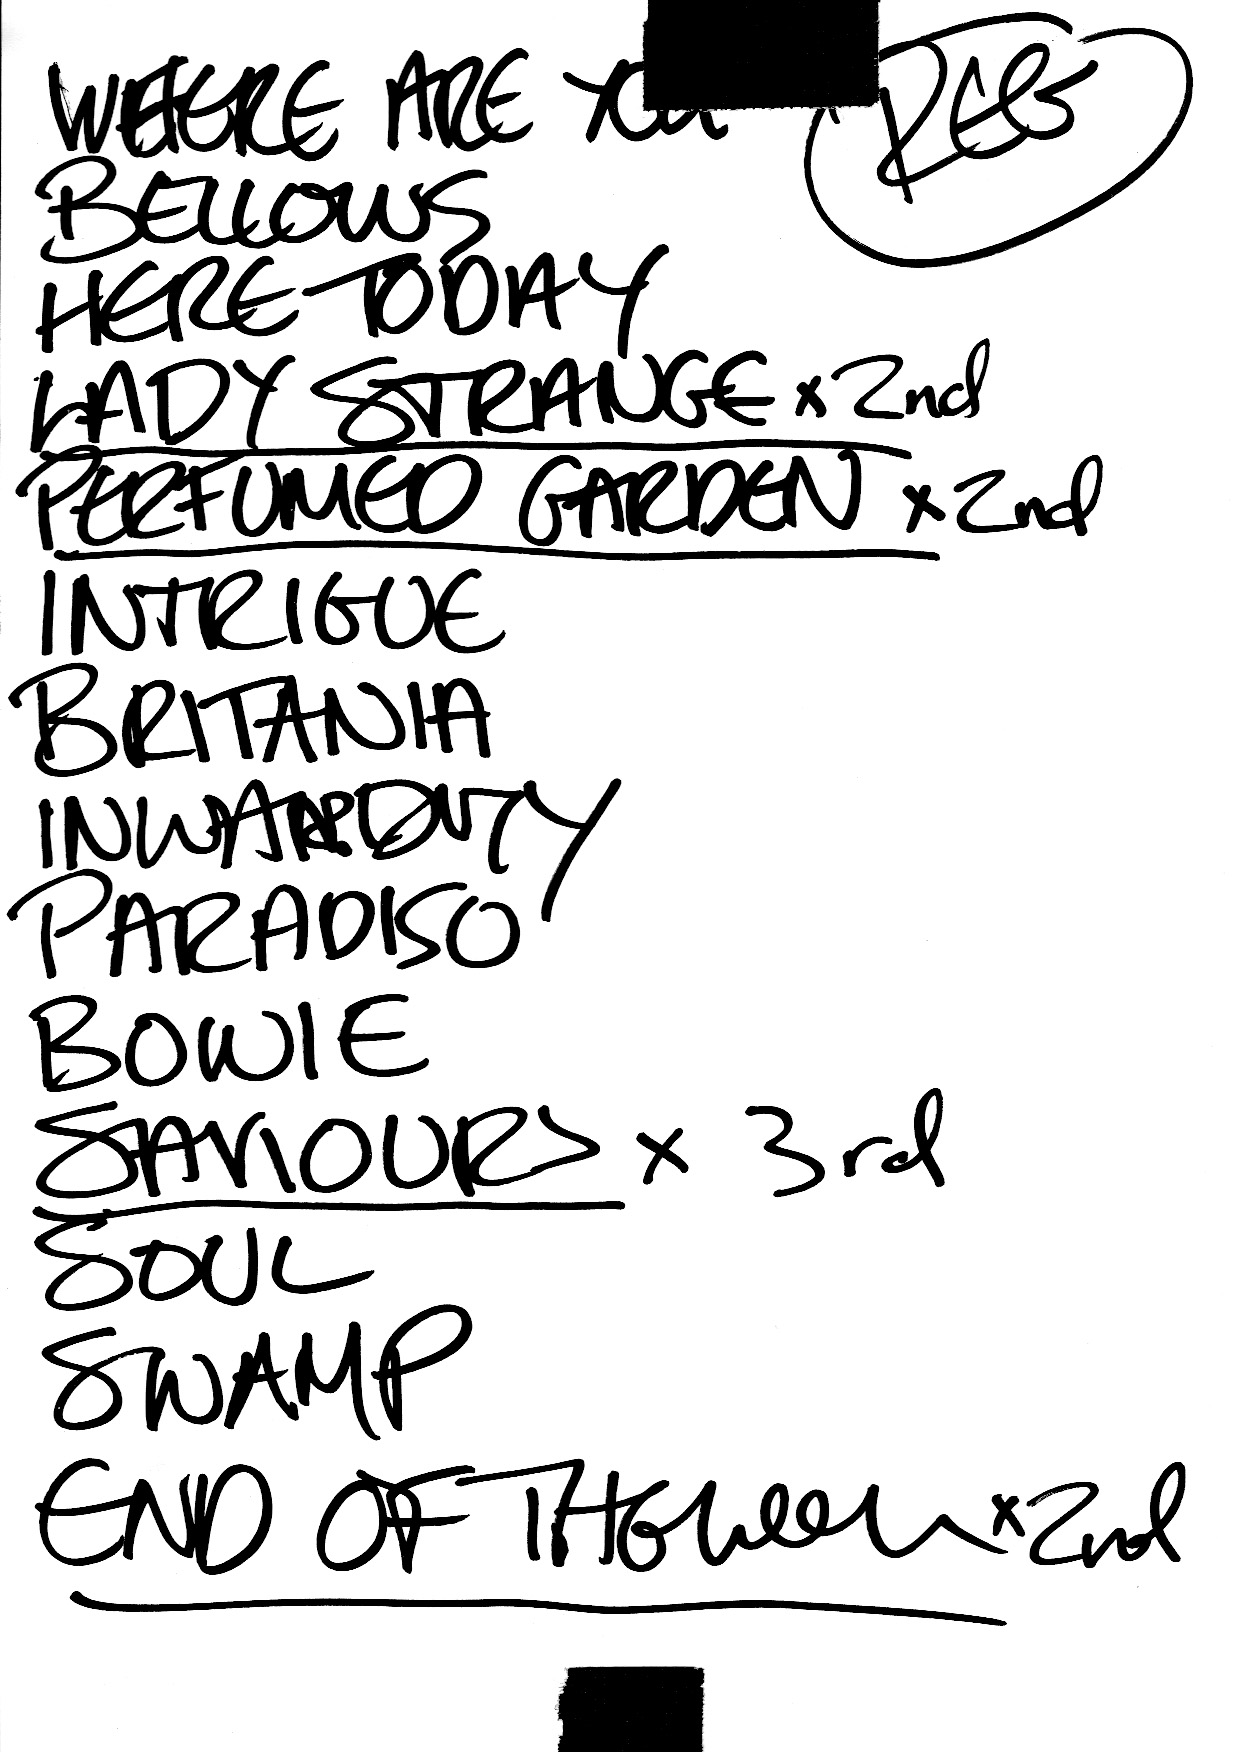 WHERE ARE YOU
BELLOWS
HERE TODAY
LADY STRANGE x 2nd
PERFUMED GARDEN x 2nd
INTRIGUE
BRITANIA
INWARD
PARADISO
BOWIE
SAVIOURS x 3rd
SOUL
SWAMP
END OF THE x 2nd